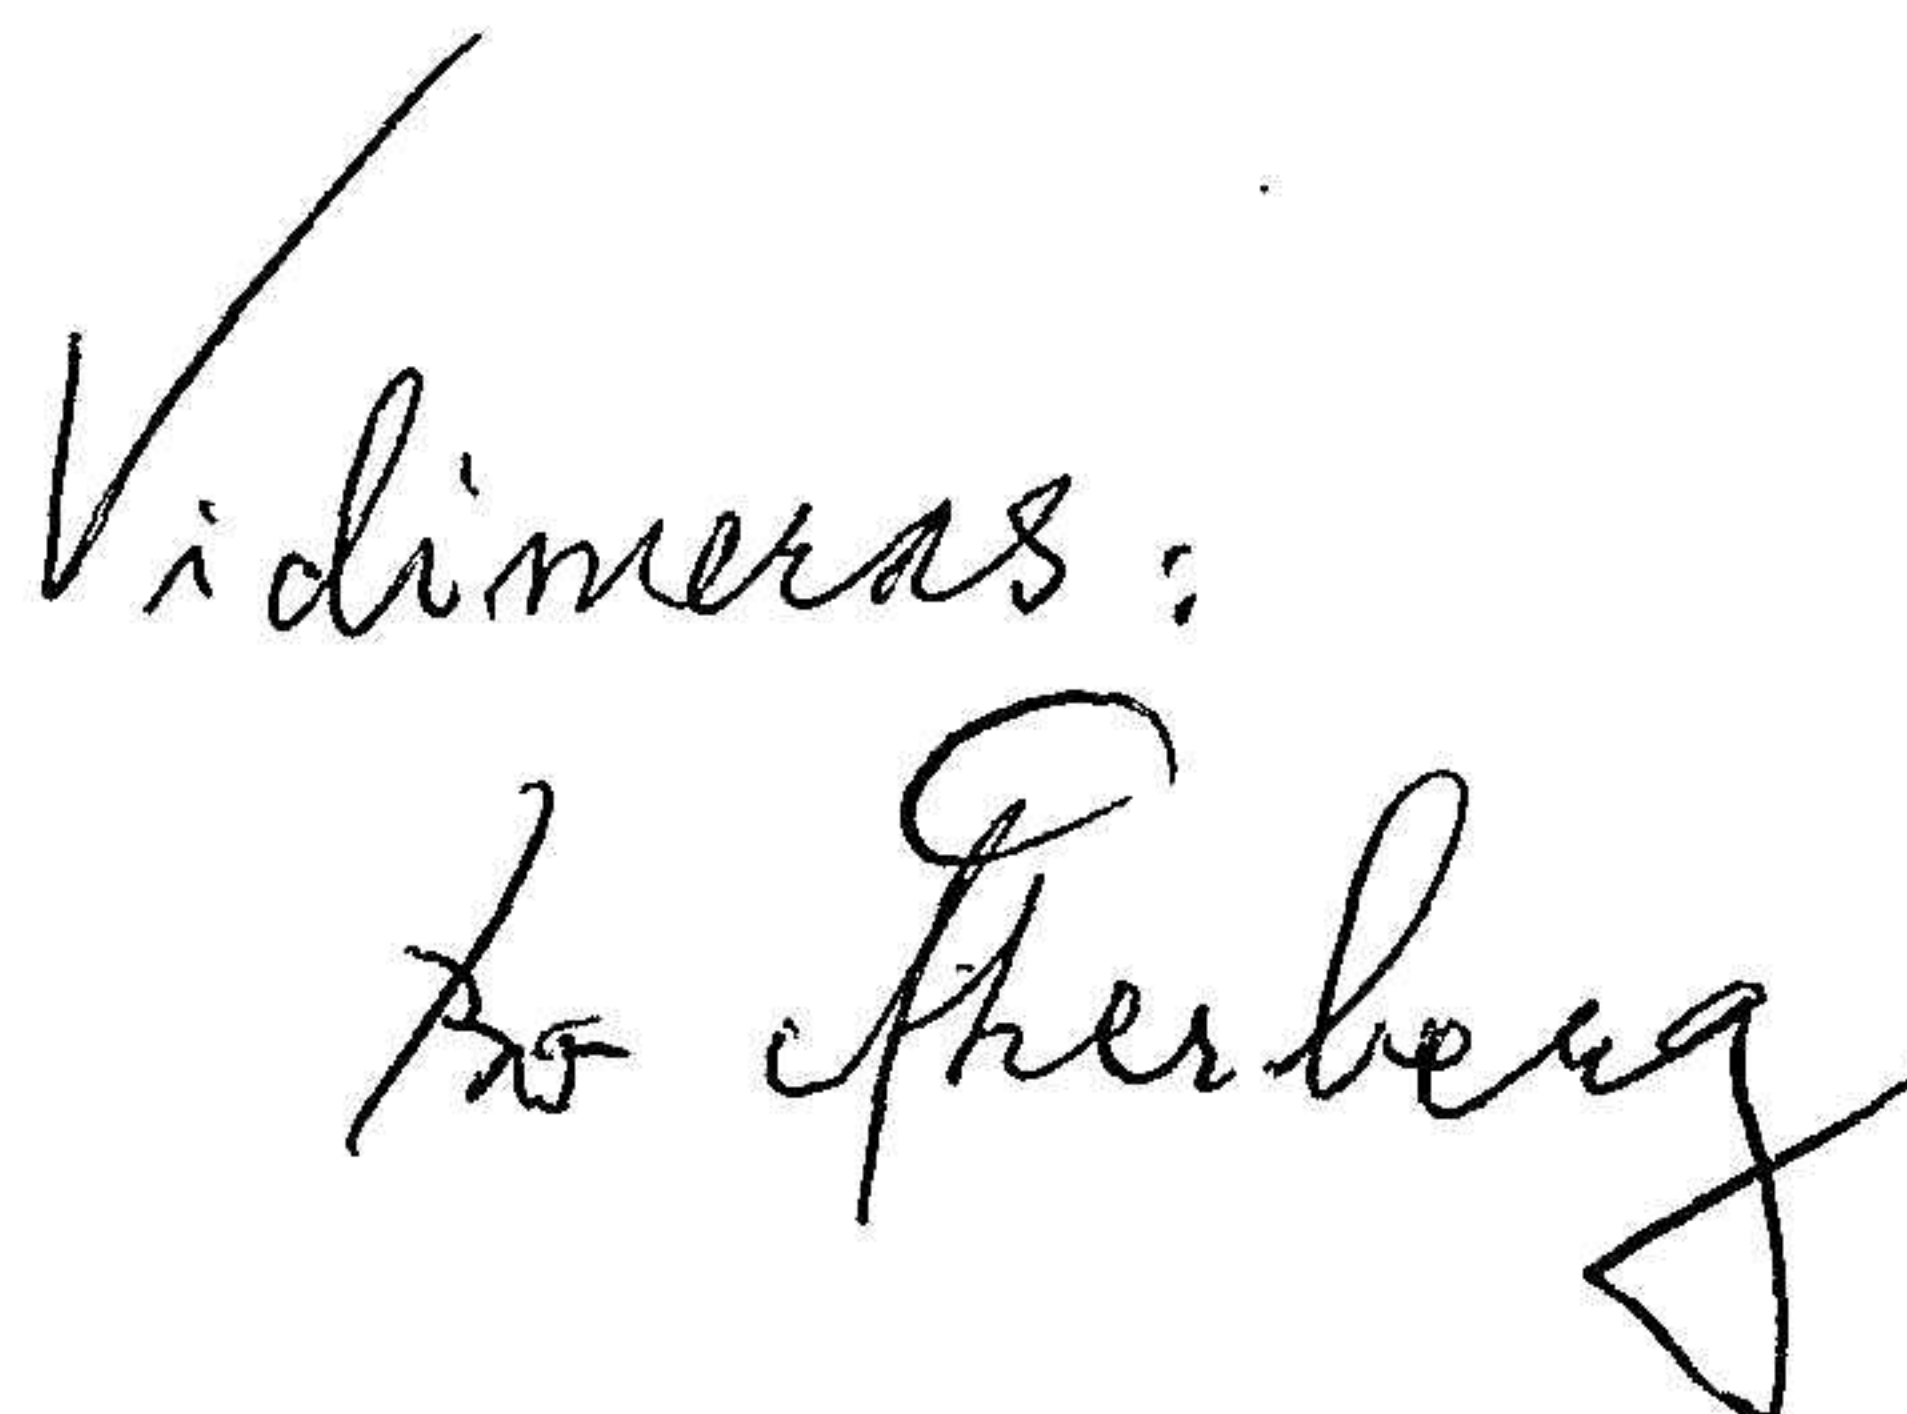 Vidimeras:
Åkerberg